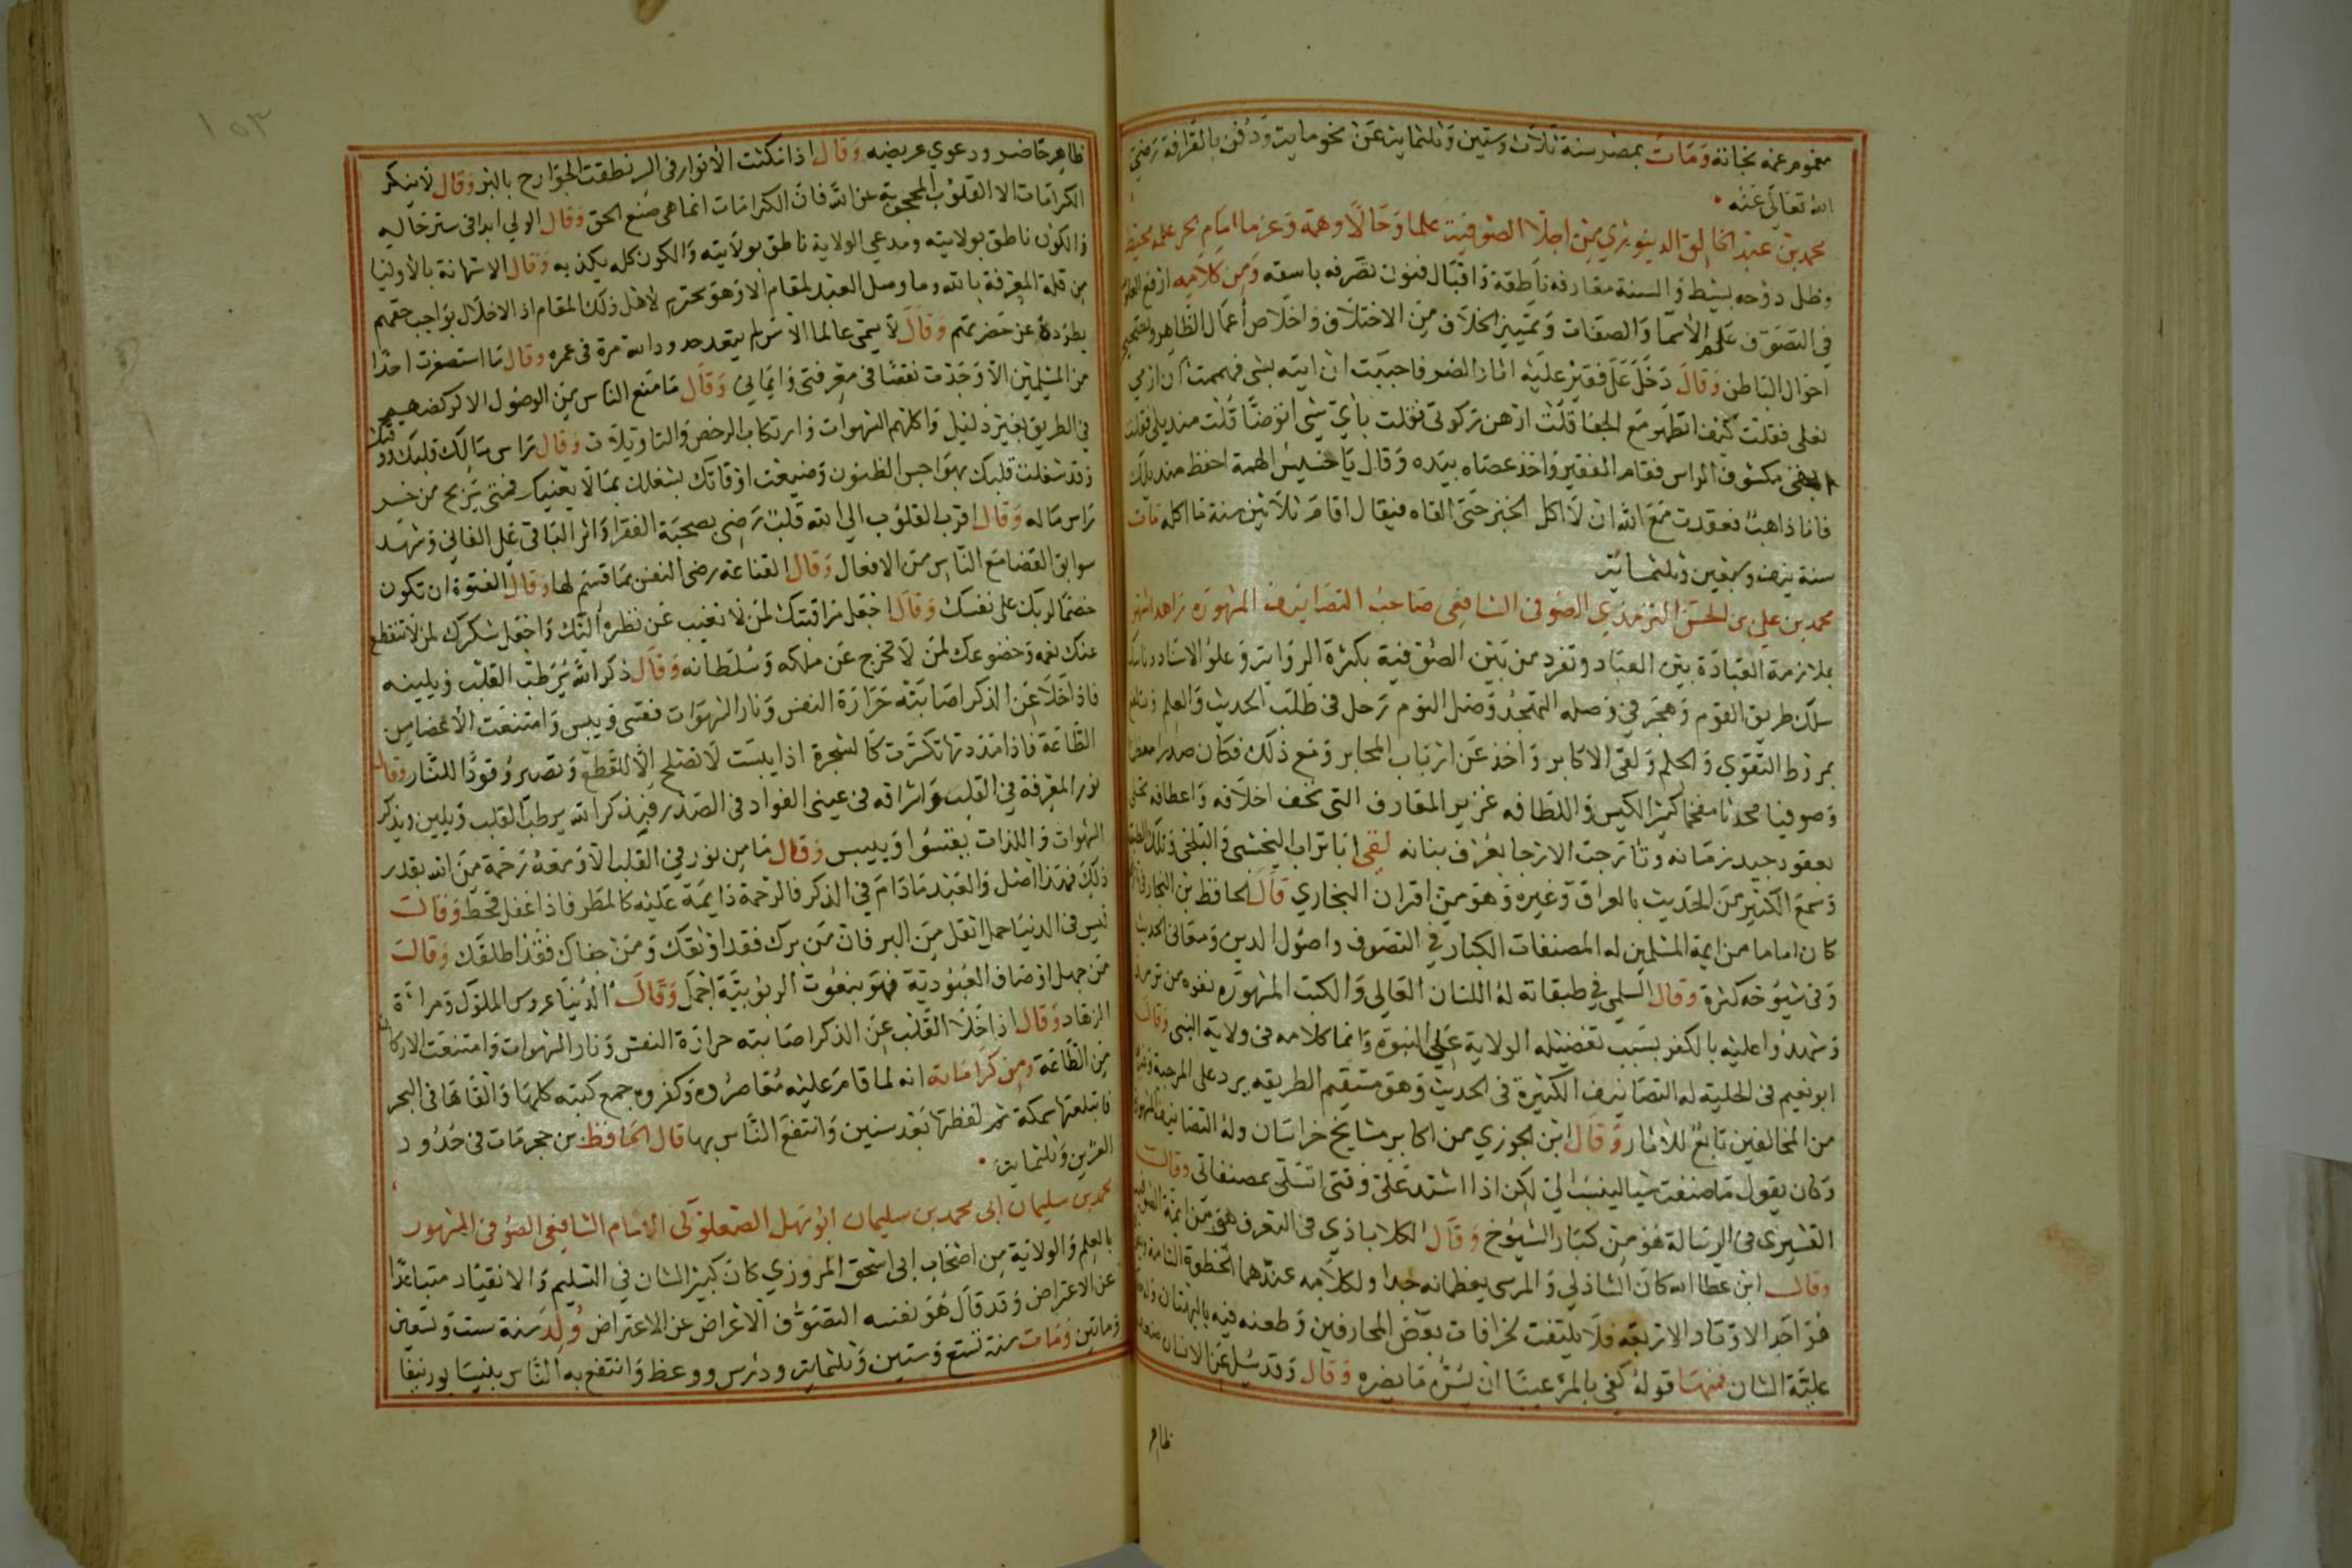 مغموم عمه نجانه وَمَاتَ بمصر سنة ثلاث وستين وثلثماية عن نحو ماية ودُفن بالقرافة رَضيَ
الله تعَالى عَنه
محمد بن عبد الخالق الدينوري من اجلّا الصوفية علما وَحَالًا وهمة وَعزما امام بحر علمه محيط
وظل دوحه بسيط وَالسنة معارفه ناطقة وَاقبال فنون تصَرفه باسقه وَمِن كلَامِه ارفع العلوم
في التصَوّف علم الاسمَا وَالصفَات وَتمييز الخلَاف مِن الاختلَاف وَاخلَاص اعمَال الظَاهِر وتصحيح
احوَال البَاطن وَقَال دَخلَ عَليّ فقير عليه اثار الضر فاحبَبت ان اتيه بشي فهممت ان ارهن
نعلي فقلت كيف اتطهر مَع الحفا قلت ارهن ركوتى فقلت بايّ شي اتوضّا قلت منديلي فقلت
ابقى مكشوف الراس فقام الفقير وَاخذ عصَاه بيَده وَقال يَا خسيس الهمة احفظ منديلك
فانا ذاهب فعقدت مَعَ الله ان لَا اكل الخبز حَتى القاه فيقال اقامَ ثلَاثين سنة مَا اكله مَات
سنة نيف وسبعين وثلثماية
محمد بن علي بن الحسَن الترمذي الصوفى الشافعى صَاحبُ التصَانيف المشهورَه زاهد اشتهر
بملازمة العبَادَة بين العبَاد وتفرد من بَين الصُوفية بكثرة الروَاية وَعلوّ الاسناد
سلك طريق القوم وَهجَر في وَصله التهجُد وَصل النوم رَحل فى طلَب الحديث وَالعلم
بمرط التقوي وَالحلم وَلقى الاكابر وَاخذ عَن ارباب المحابر وَمع ذلك فكان صدرا معظما
وَصوفيا محدثا مفخما كثير الكيس وَاللطافه غزير المعَارف التى تخف اخلَاقه وَاعطافه
بعقود جيد زمَانه وتارجت الارجا بعرف بنانه لقى ابَا تراب النخشبى وَالبَلخى وَتلك الطبقة
وَسمعَ الكثير مِن الحَديث بالعراق وَغيره وَهوَ من اقران البخاري قال الحافظ بن النجار
كان اماما من ايمة المسلمين له المصنفات الكبار في التصَوف واصُول الدين وَمعَانى الحديث
وَفى شيُوخه كثرة وَقال السلمى في طبقاته لهُ اللسَان العَالى وَالكتب المشهورَه نفوه من ترمد
وَشهدُوا عليه بالكفر بسَبب تفضيله الولاية عَلى النبوة وَانما كلامه فى ولاية النبى وَقال
ابو نعيم فى الحلية له التصَانيف الكثيرة فى الحديث وَهو مستقيم الطريقه يرد على المرجية وَغيرهم
من المخالفين تابعٌ للاثار وَقال ابن الجوزي من اكابر مشايخ خراسَان ولهُ التصَانيف المشهورة
وَكان يقول مَا صَنفت شيا لينسَب اليّ لكن اذا اشتد عَليّ وَقتى اتسَلى بمصنفاتى وَقال
القشيرى فى الرسَالة هُوَ من كبَار الشيُوخ وَقال الكلاباذي فى التعرف هوَ من ايمة الصوفية
وَقال ابن عطا الله كان الشاذلي وَالمرسى يعظمانه جدا ولكلَامه عندَهما الحظوة التامة
هُوَ احَد الاوتَاد الاربعَه فلَا يلتفت لخرافات بعض المحارفين وَطعنه فيه بالبهتان
عليّة الشان فمنهَا قولهُ كفى بالمرْ عيبا ان يسُرّه مَا يضره وَقال وَقد سُئل عَن الانسَان
ظاهر
١٥٣
ظاهِر حَاضر ودعوي عريضه وَقال اذا مَكثت الانوَار فى السر نطقت الجوَارح بالبر وَقال لَا ينكر
الكرامَات الا القلوُب المحجوبة عن الله فان الكرامَات انما هى صنع الحق وَقال الولي ابدا فى ستر حَاله
وَالكون ناطق بولايته ومدعى الولاية ناطق بولَايته وَالكون كله يكذبه وَقال الاستهانة بالاوليَا
من قلة المعرفة بالله وما وصل العبد لمقام الا وَهوَ محترم لاهل ذلك المقام اذ الاخلَال بوَاجب حقهم
يطردهُ عَن حَضرتهم وَقال لَا يسمّى عَالما الا من لم يتعد حدود الله مرة فى عمره وَقال مَا استصغرت احدًا
من المسلمين الا وَجَدْت نقصًا في معرفتى وَايمانى وَقال مَا منع الناس من الوصُول الا لركضهم
في الطريق بغير دليل وَاكلهم الشهوات وَارتكاب الرخص وَالتاويلَات وَقال رَاس مَالك قلبك ووقتك
وَقد شغلت قلبك بهوَاجس الظنون وَضيعت اوقاتك بشغلك بمَا لَا يعنيك فمتى يربح من خسر
رَاس مَاله وَقال اقرب القلوب الى الله قلبٌ رَضى بصحبَة الفقرا وَاثر البَاقى عَلى الفانى وَشهد
سوابق القضا مَع النَاس من الافعال وَقال القناعة رضى النفس بمَا قسم لها وَقال الفتوة ان تكون
خصمًا لربّك على نفسك وَقال اجعَل مرَاقبتك لمَن لَا تغيب عَن نظره اليك وَاجعَل شكرك لمَن لَا تنقطع
عنك نعمه وَخضوعك لمَن لَا تخرج عَن ملكه وَسُلطانه وَقال ذكر الله يُرَطب القلب وَيلينه
فاذا خلَا عَن الذكر اصَابته حَرَارة النفس وَنار الشهوَات فقسى وَيبس وَامتنعَت الاعضا من
الطَاعة فاذا مَدَدتها تكسّرت كالشجرة اذا يبست لَا تصلح الَّا للقطع وَتصير وَقودًا للنَّار وَقال
نور المعرفة في القلب وَاشراقه فى عينى الفواد فى الصدر فبذكر الله يرطب القلب وَيلين وبذكر
الشهوات وَاللذات يقسُوا وَييبس وَقال مَا من نور في القلب الا وَمعَهُ رَحمة مِن الله بقدر
ذلك فهَذا اصل وَالعَبد مَادَامَ في الذكر فالرحمة دَايمَة عَليه كالمطَر فاذا غفل قحط وَقال
ليس فى الدنيَا حمل اثقل من البر فان مَن برك فقد اوثقك وَمَن جفاك فقد اطلقك وَقال
مَن جهل اوصَاف العبُودية فهوَ بنعُوت الربُوبيّة اجهَل وَقال الدُنيَا عروس الملوك وَمرآة
الزهاد وَقال اذا خلا القلب عن الذكر اصَابته حرارة النفس وَنار الشهوات وَامتنعَت الاركان
مِن الطَّاعة ومِن كَرَامَاته انه لما قامَ عليه مُعَاصرُوه وَكفروه جمع كتبه كلهَا وَالقَاهَا فى البحر
فابتلعتها سمكة ثم لفظتهَا بَعْد سنين وَانتفع النَّاس بها قال الحَافظ بن حجر مَات فى حُدُود
العشرين وَثلثماية
محمد بن سليمان ابى محمد بن سليمان ابُو سَهل الصعلوكى الامَام الشافعى الصُوفى المشهور
بالعلم وَالولاية مِن اصحَاب ابى اسحق المروزي كان كبير الشان في التسليم وَالانقيَاد متبَاعدًا
عن الاعتراض وَقد قال هُوَ نفسه التصَوّف الاعراض عن الاعتراض وُلدَ سَنة ست وَتسعين
وَماتين وَمَات سنة تسع وَستين وَثلثماية ودرس ووعظ وَانتفع به النَّاس بنيسَابور نيفا